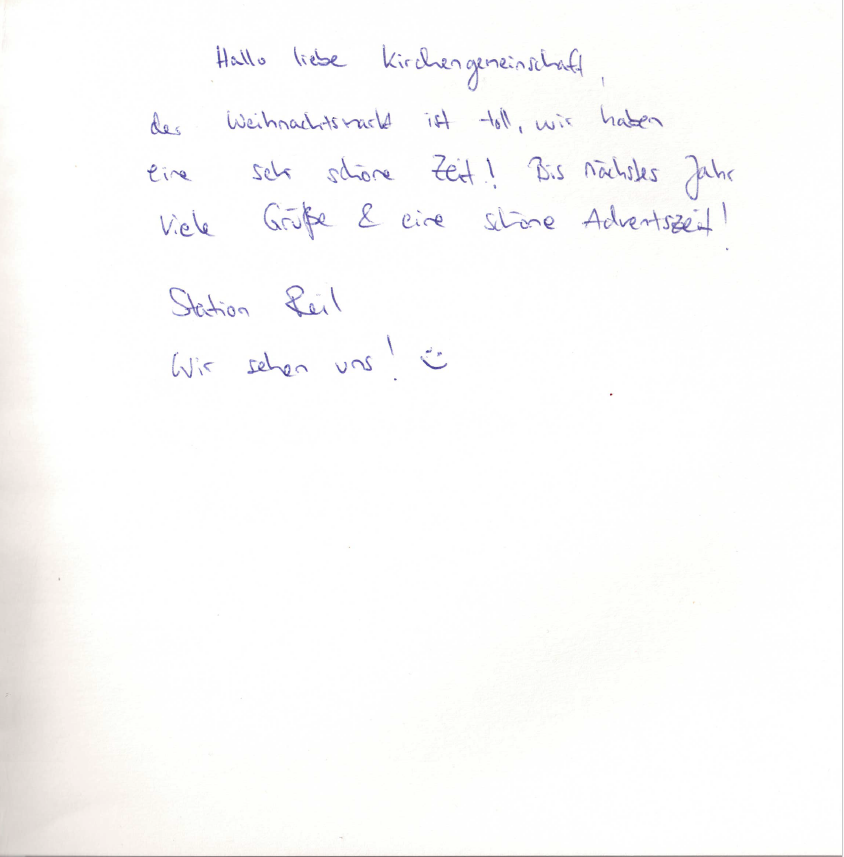 Hallo liebe Kirchengemeinschaft,
der Weihnachtsmarkt ist toll, wir haben
eine sehr schöne Zeit! Bis nächstes Jahr
Viele Grüße & eine schöne Adventszeit!
Station Reil
Wir sehen uns! ☺